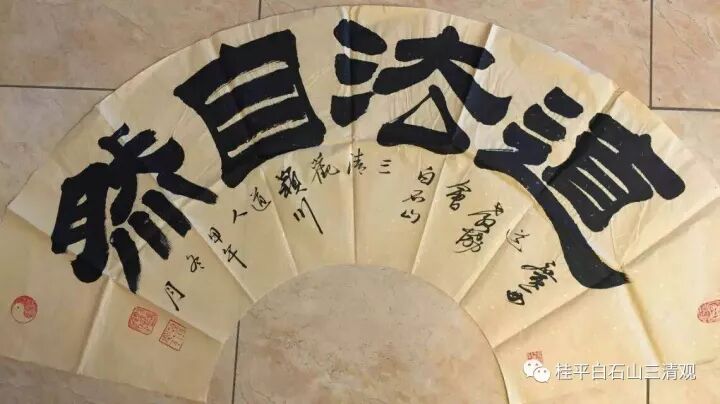 道法自然
廣西道教協會
白石山三清觀
穎川道人
甲午冬月
桂平白石山三清观